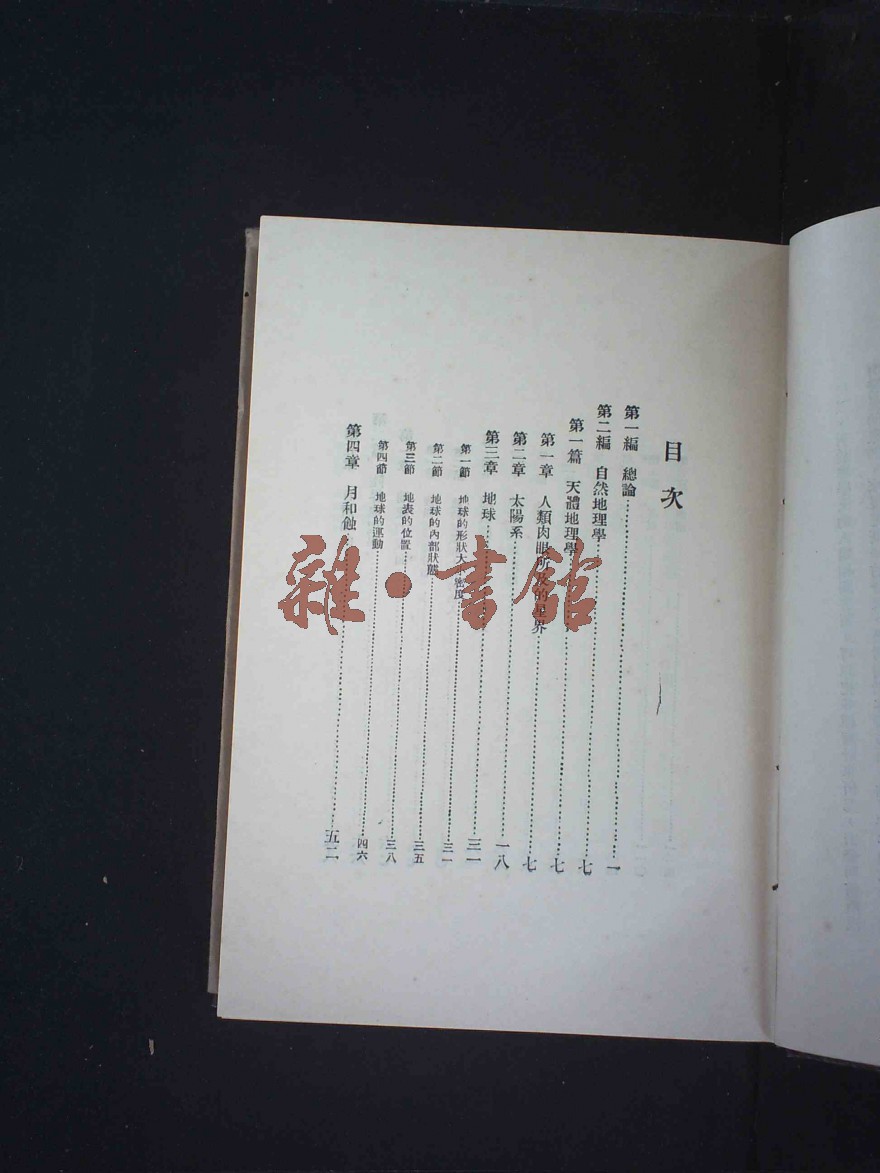 目次
第一編 總論……一
第二編 自然地理學……七
第一篇 天體地理學……七
第一章 人類肉眼所及的世界……七
第二章 太陽系……一八
第三章 地球……三一
第一節 地球的形狀大小密度……三一
第二節 地球的內部狀態……三五
第三節 地表的位置……三八
第四節 地球的運動……四六
第四章 月和蝕……五二
雜·書館